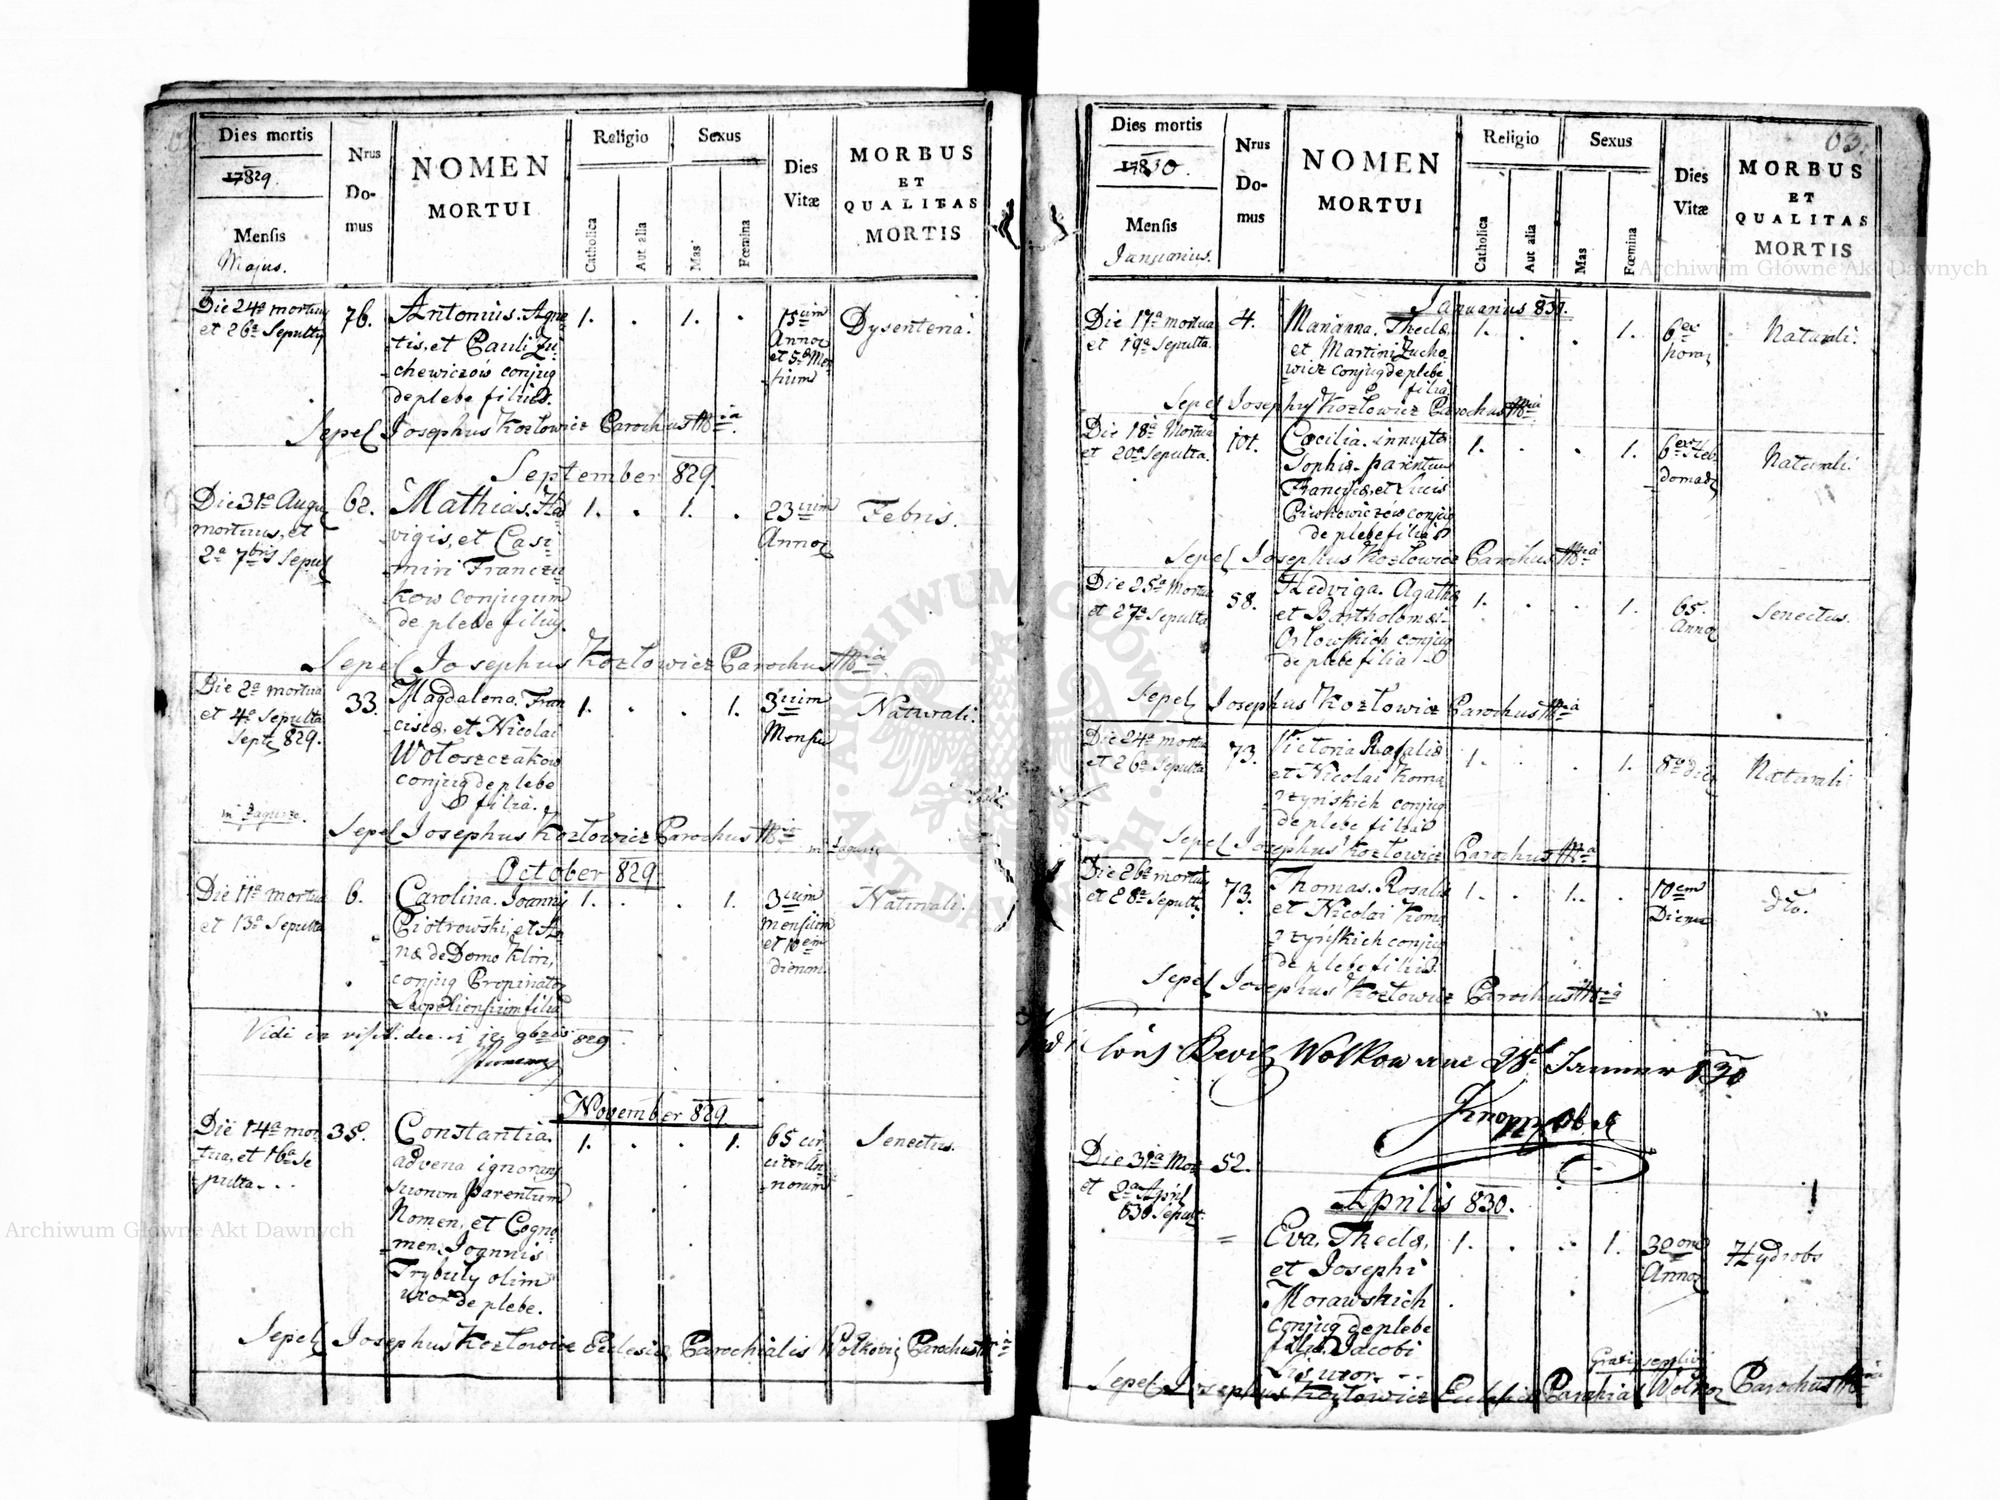 Dies mortis
17829.
Mensis
Majus.
Nrus
Do-
mus
NOMEN
MORTUI
Religio
Catholica
Aut alia
Sexus
Mas
Fœmina
Dies
Vitæ
MORBUS
ET
QUALITAS
MORTIS
Die 24ª mortuus
et 26ª Sepultus
76.
Antonius. Agne
tis, et Pauli Zu
chewiczów conjug
de plebe filius.
1. . 1. .
15cim
Annor
et 5 Men
sium
Dysenteria.
Sepel Josephus Kozłowicz Parochus Mpia
September 829.
Die 31ª Aug
mortuus, et
2ª 7bris Sepul
62.
Mathias. Hed
vigis, et Casi
miri Franczu
kow conjugum
de plebe filius.
1. . 1. .
23ium
Annor
Febris.
Sepel Josephus Kozłowicz Parochus Mpia
Die 2ª mortua
et 4ª Sepulta
Septr 829.
33.
Magdalena. Fran
ciscæ, et Nicolai
Wołoszczaków
conjug de plebe
filia.
1. . . 1.
3ium
Mensiu
Naturali.
Sepel Josephus Kozłowicz Parochus Mpia
October 829.
Die 11ª mortua
et 13ª Sepulta
6.
Carolina. Joannis
Piotrowski, et An
næ de Domo Klin,
conjug Propinator
Leopoliensium filia
1. . . 1.
3ium
mensium
et 10em
dierum.
Naturali.
Vidi in visit. 829
November 829.
Die 14ª mor
tua, et 16ª Se
pulta. . .
35.
Constantia.
advena ignorans
suorum Parentum
Nomen, et Cogno
men. Joannis
Trybuły olim
uxor de plebe.
1. . . 1.
65 cir
citer An
norum
Senectus.
Sepel Josephus Kozłowicz Eclesiæ Parochialis Wołkoviz Parochus Mpia
03.
Dies mortis
17830.
Mensis
Januarius.
Nrus
Do-
mus
NOMEN
MORTUI
Religio
Catholica
Aut alia
Sexus
Mas
Fœmina
Dies
Vitæ
MORBUS
ET
QUALITAS
MORTIS
Januarius 830.
Die 17ª mortua
et 19ª Sepulta.
4.
Marianna. Theclæ
et Martini Zucho
wicz conjug de plebe
filia
1. . . 1.
6ex
horar
Naturali.
Sepel Josephus Kozłowicz Parochus Mpia
Die 18ª Mortua
et 20ª Sepulta.
101.
Cæcilia. innupta
Sophia parentum
Franciscæ, et Lucis
Piwkowiczow conjug
de plebe filia
1. . . 1.
6ex Heb
domad
Naturali.
Sepel Josephus Kozłowicz Parochus Mpia
Die 25ª Mortua
et 27ª Sepulta
58.
Hedviga. Agathæ
et Bartholomæi
Orłowskich conjug
de plebe filia
1. . . 1.
65.
Annor
Senectus.
Sepel Josephus Kozłowicz Parochus Mpia
Die 24ª mortua
et 26ª Sepulta
73.
Victoria Rosaliæ
et Nicolai Koma
rzyńskich conjug
de plebe filia
1. . . 1.
8º die
Naturali
Sepel Josephus Kozłowicz Parochus Mpia
Die 26ª mortuus
et 28ª Sepultus
73.
Thomas. Rosaliæ
et Nicolai Koma
rzyńskich conjug
de plebe filius.
1. . 1. .
10em
Dierum
dto.
Sepel Josephus Kozłowicz Parochus Mpia
Wolkow am 28t Janner 830
Die 31ª Mor
et 2ª April
830 Sepult.
52.
Aprilis 830.
Eva, Theclæ,
et Josephi
Morawskich
conjug de plebe
filia. Jacobi
Lis uxor. . .
1. . . 1.
30
Annor
Hydrobs
Sepel Josephus Kozłowicz Eclesiæ Parochial Wolkov Parochus Mpia
Archiwum Główne Akt Dawnych
Archiwum Główne Akt Dawnych
ARCHIWUM GŁÓWNE AKT DAWNYCH